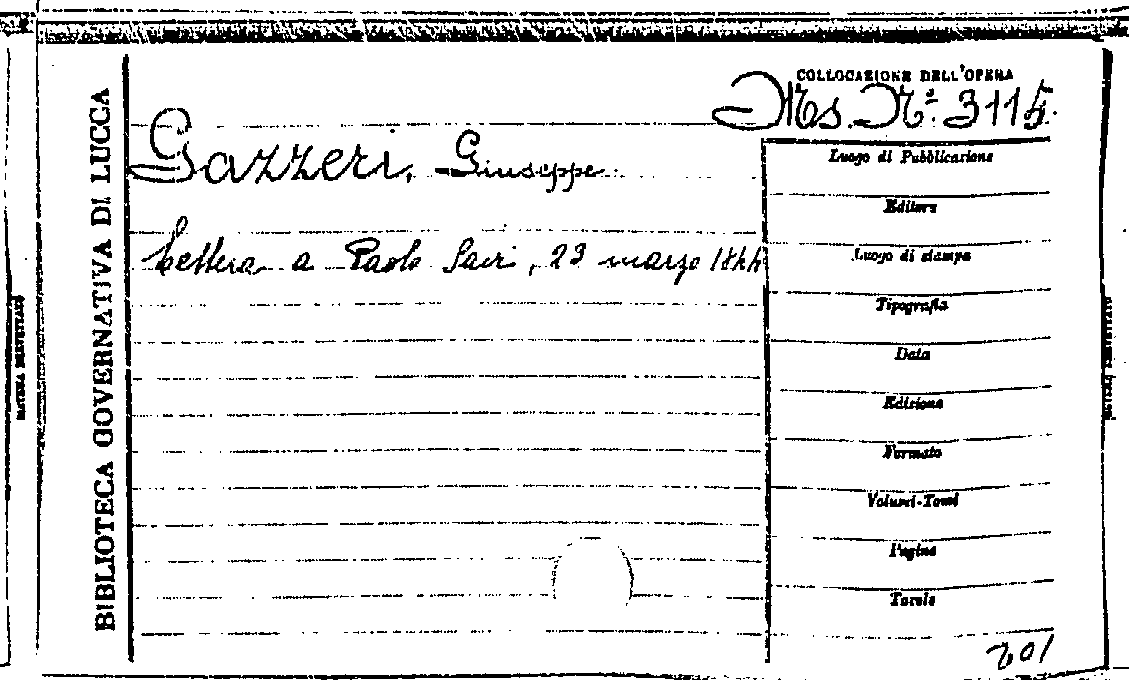 COLLOCAZIONE DELL'OPERA
Ms. Nº. 3115.
BIBLIOTECA GOVERNATIVA DI LUCCA
Gazzeri, Giuseppe
Lettera a Paolo Savi, 23 marzo 1844
Luogo di Pubblicazione
Editore
Luogo di stampa
Tipografia
Data
Edizione
Formato
Volumi-Tomi
Pagine
Tavole
201